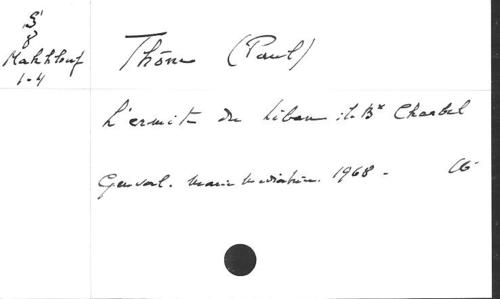 S'
8
Makhlouf
1-4
Thône (Paul)
L'ermite du Liban : le Bx Charbel
Genval. Marie Médiatrice. 1968 -